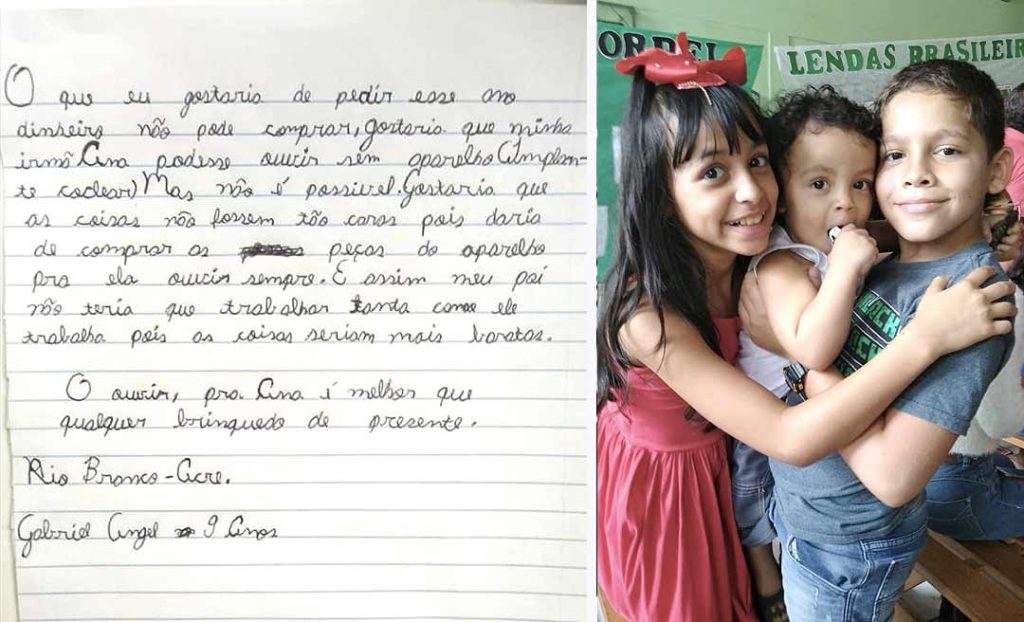 O que eu gostaria de pedir esse ano
dinheiro não pode comprar, gostaria que minha
irmã Ana podesse ouvir sem aparelho (Implan-
te coclear) Mas não é possivel. Gostaria que
as coisas não fossem tão caras pois daria
de comprar as peças do aparelho
pra ela ouvir sempre. E assim meu pai
não teria que trabalhar tanto como ele
trabalha pois as coisas seriam mais baratas.
O ouvir, pra Ana é melhor que
qualquer brinquedo de presente.
Rio Branco - Acre.
Gabriel Angel 9 Anos
ORDEL
LENDAS BRASILEIR